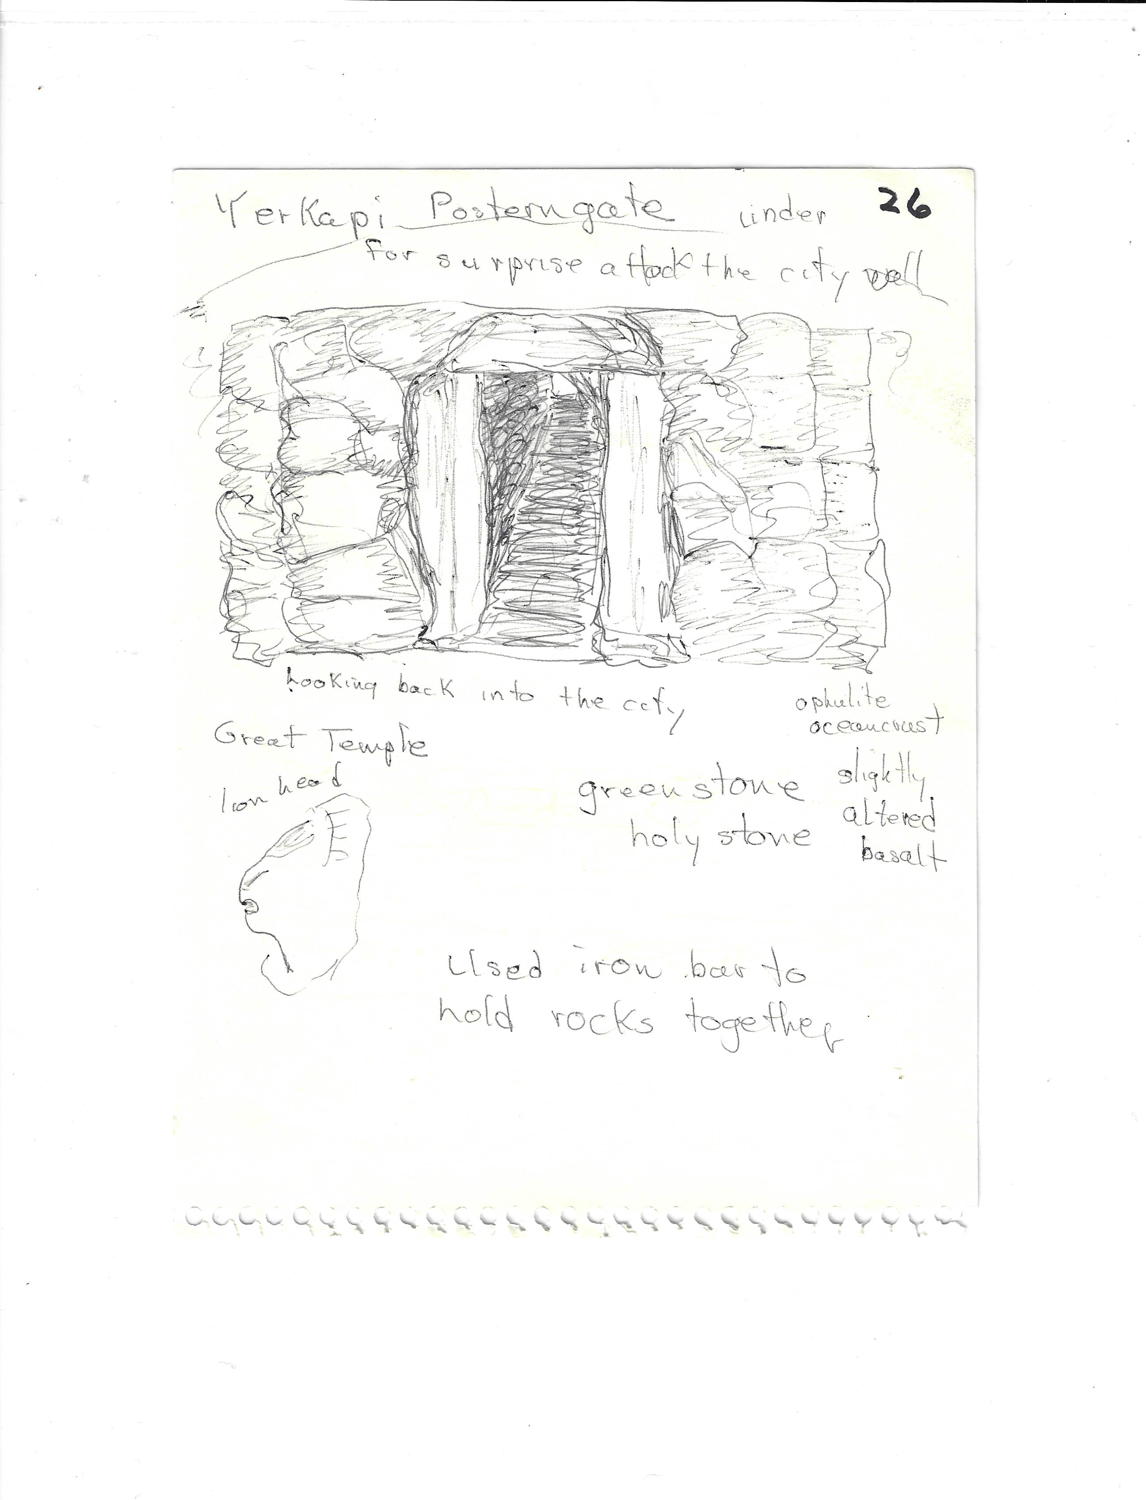 Yerkapi Posterngate under 26
for surprise attack the city wall
Looking back into the city
ophulite
oceancrust
Great Temple
slightly
green stone
lion head
altered
holy stone
basalt
Used iron bar to
hold rocks together